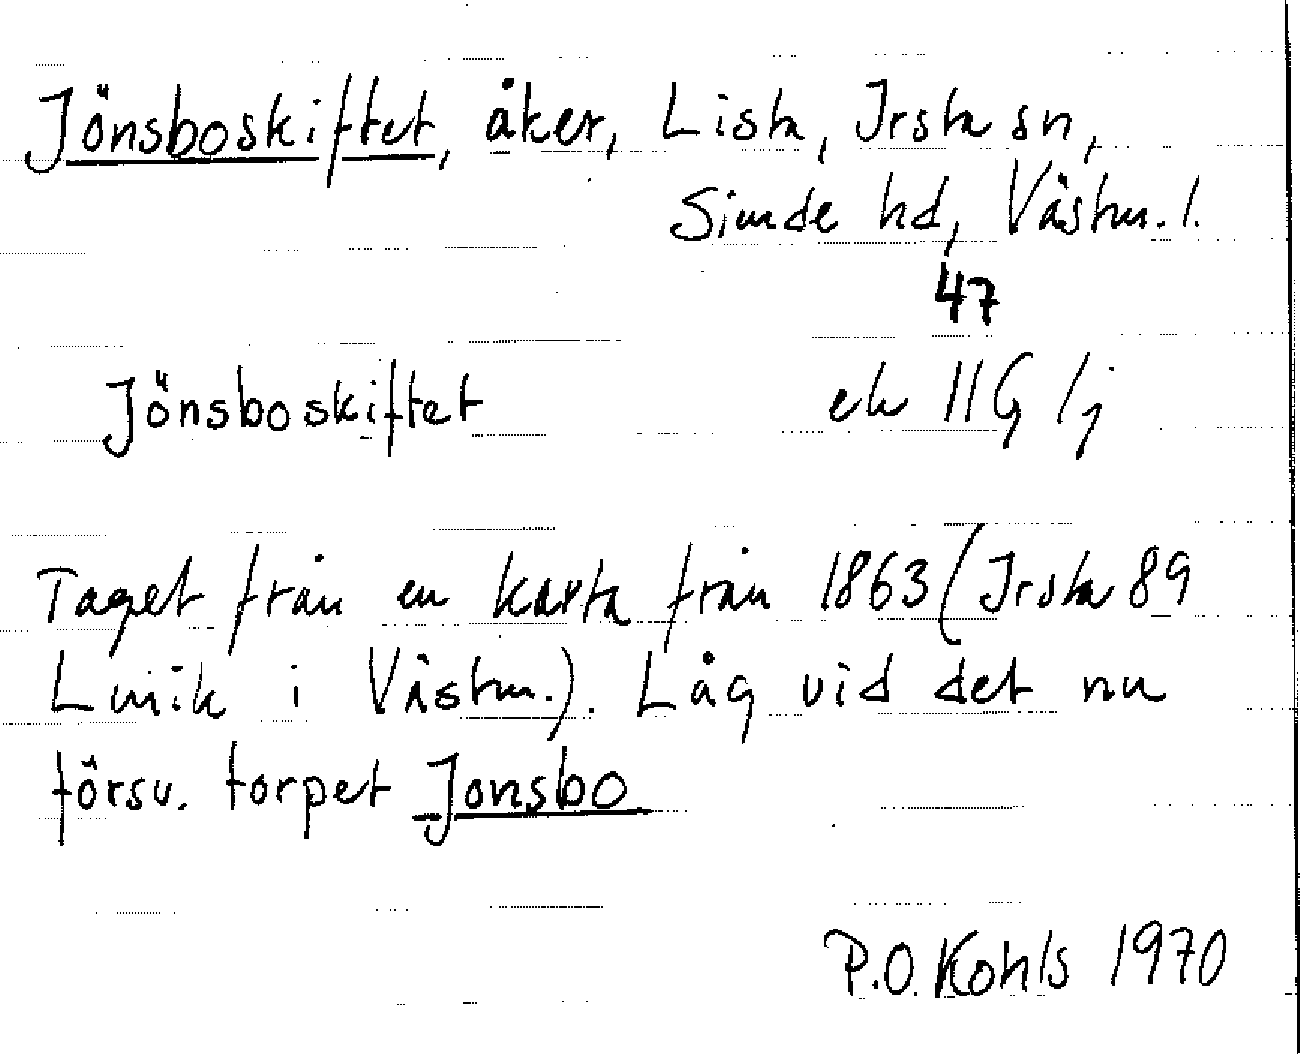 Jönsboskiftet, åker, Lista, Irsta sn,
Siende hd, Västm. l.
47
Jönsboskiftet ek 11G 1j
Taget från en karta från 1863 (Irsta 89
Lmik i Västm.). Låg vid det nu
försv. torpet Jonsbo
P.O. Kohls 1970